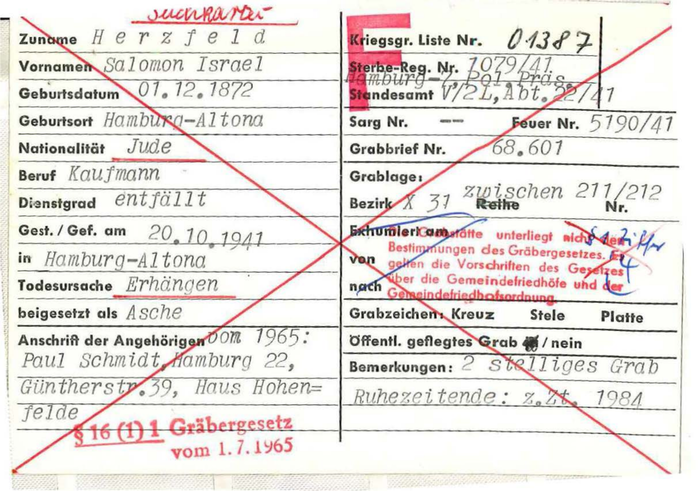 Suchkartei
Zuname Herzfeld
Vornamen Salomon Israel
Geburtsdatum 01.12.1872
Geburtsort Hamburg-Altona
Nationalität Jude
Beruf Kaufmann
Dienstgrad entfällt
Gest./Gef. am 20.10.1941
in Hamburg-Altona
Todesursache Erhängen
beigesetzt als Asche
Anschrift der Angehörigen vom 1965:
Paul Schmidt, Hamburg 22,
Güntherstr.39, Haus Hohen=
felde
§ 16 (1) 1 Gräbergesetz
vom 1.7.1965
F
Kriegsgr. Liste Nr. 01387
Sterbe-Reg. Nr. 1079/41
Hamburg-2, Pol. Präs.
Standesamt V/2L, Abt. 22/41
Sarg Nr. -- Feuer Nr. 5190/41
Grabbrief Nr. 68.601
Grablage:
zwischen 211/212
Bezirk X 31 Reihe Nr.
Exhumiert am
von
nach
Die Grabstätte unterliegt nicht den
Bestimmungen des Gräbergesetzes. Es
gelten die Vorschriften des Gesetzes
über die Gemeindefriedhöfe und der
Gemeindefriedhofsordnung.
§ 1 Ziffer
4
Grabzeichen: Kreuz Stele Platte
Öffentl. gepflegtes Grab / nein
Bemerkungen: 2 stelliges Grab
Ruhezeitende: z.Zt. 1984